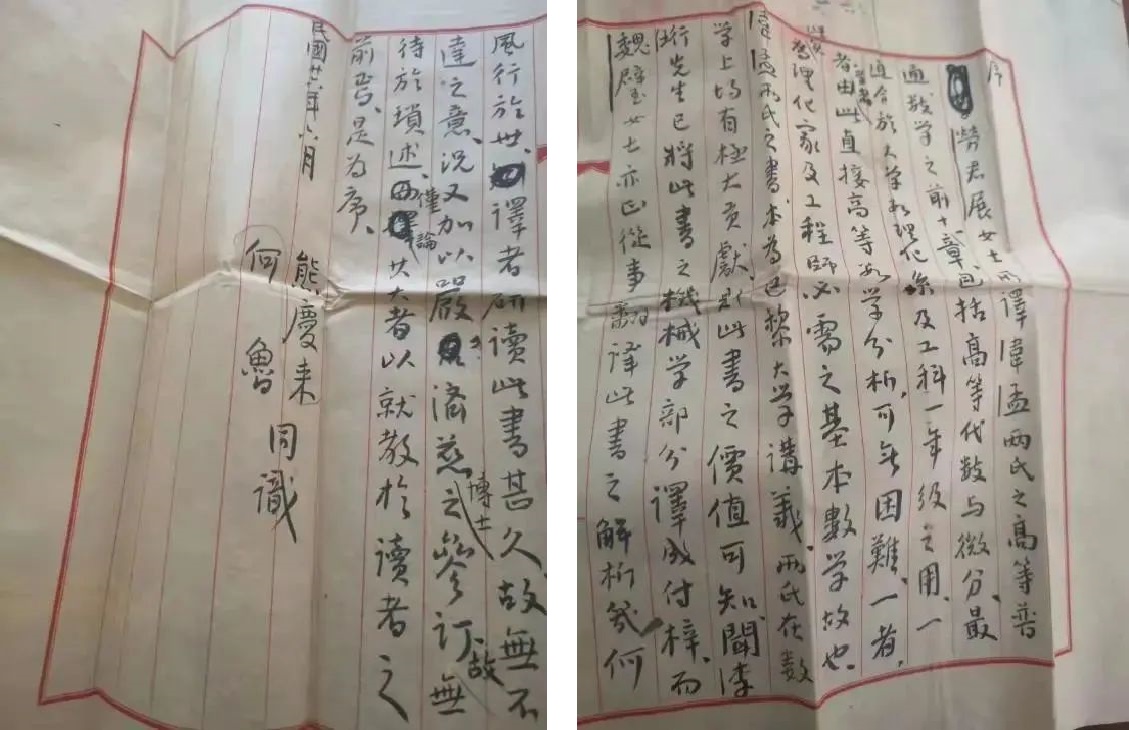 序
勞君展女士所譯偉孟兩氏之高等普
通数学之前十章包括高等代数与微分、最
適合於大学数理化系及工科一年级之用、一
者由此直接高等数学分析、可無困難、一者,
為理化家及工程師必需之基本數学故也、
偉孟兩氏之書本為巴黎大学講義、兩氏在数
学上均有極大貢獻、則此書之價值可知、聞李
珩先生已將此書之機械学部分譯成付梓、而
魏璧女士亦正從事翻译此書之解析幾何
風行於世、譯者研讀此書甚久、故無不
達之意、況又加以嚴濟慈博士之參订、故無
待於瑣述、僅論其大者以就教於讀者之
前焉、是為序、
民國廿六年六月
熊慶来
何魯 同識